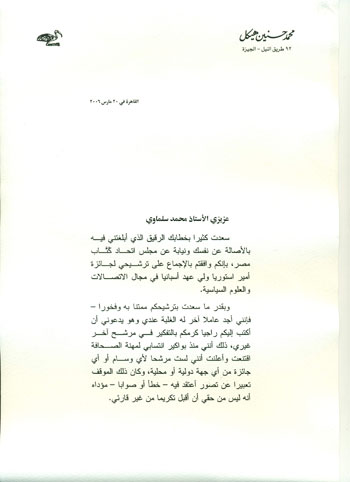 محمد حسنين هيكل
١٢ طريق النيل - الجيزة
القاهرة في ٢٠ مارس ٢٠٠٦
عزيزي الأستاذ محمد سلماوي
سعدت كثيرا بخطابك الرقيق الذي أبلغتني فيه
بالأصالة عن نفسك ونيابة عن مجلس اتحاد كُتَّاب
مصر، بإنكم وافقتم بالإجماع على ترشيحي لجائزة
أمير استوريا ولي عهد أسبانيا في مجال الاتصالات
والعلوم السياسية.
وبقدر ما سعدت بترشيحكم ممتنا به وفخورا –
فإنني أجد عاملا آخر له الغلبة عندي وهو يدعوني أن
أكتب إليكم راجيا كرمكم بالتفكير في مرشح آخر
غيري، ذلك أنني منذ بواكير انتسابي لمهنة الصحافة
اقتنعت وأعلنت أنني لست مرشحا لأي وسام أو أي
جائزة من أي جهة دولية أو محلية، وكان ذلك الموقف
تعبيرا عن تصور أعتقد فيه – خطأ أو صوابا – مؤداه
أنه ليس من حقي أن أقبل تكريما من غير قارئي.